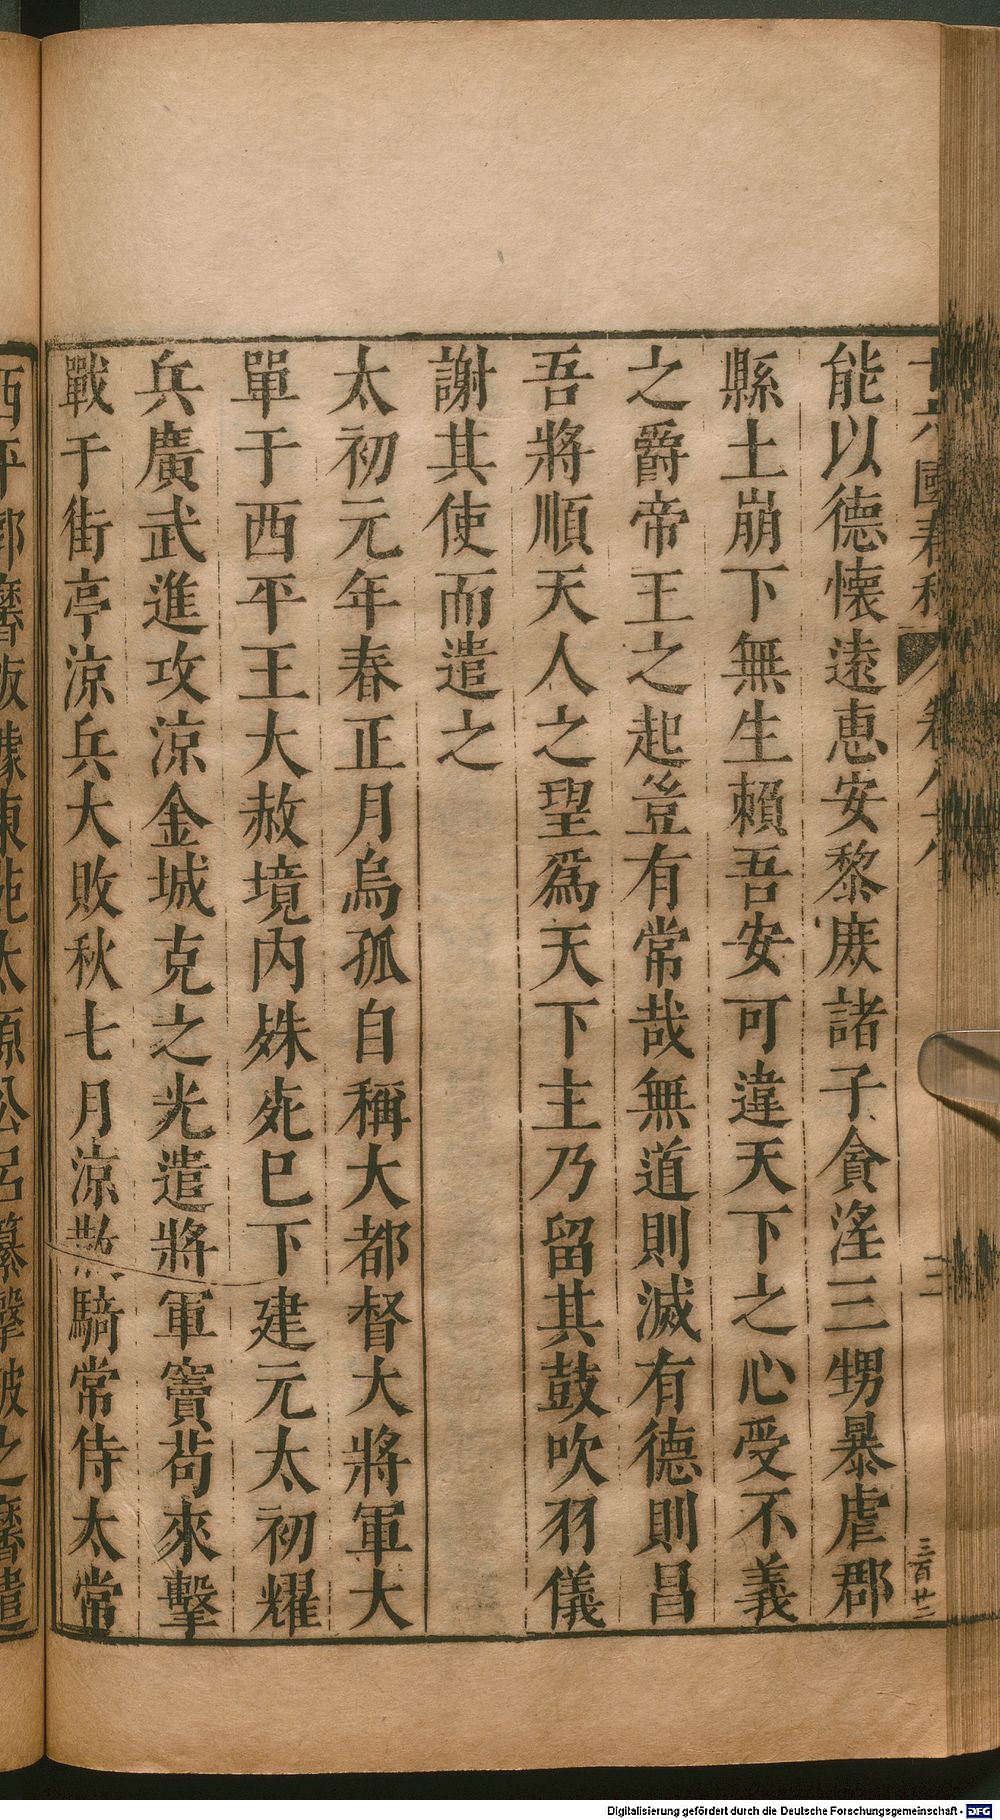 十六國春秋 卷八十八 三 三百廿二
能以德懷遠惠安黎庻諸子貪淫三甥暴虐郡
縣土崩下無生賴吾安可違天下之心受不義
之爵帝王之起豈有常哉無道則滅有德則昌
吾將順天人之望爲天下主乃留其鼓吹羽儀
謝其使而遣之
太初元年春正月烏孤自稱大都督大將軍大
單于西平王大赦境内殊死巳下建元太初耀
兵廣武進攻涼金城克之光遣將軍竇茍來擊
戰于街亭涼兵大敗秋七月涼散騎常侍太常
西平郭黁叛據東苑太原公呂纂擊破之黁遣
Digitalisierung gefördert durch die Deutsche Forschungsgemeinschaft - DFG